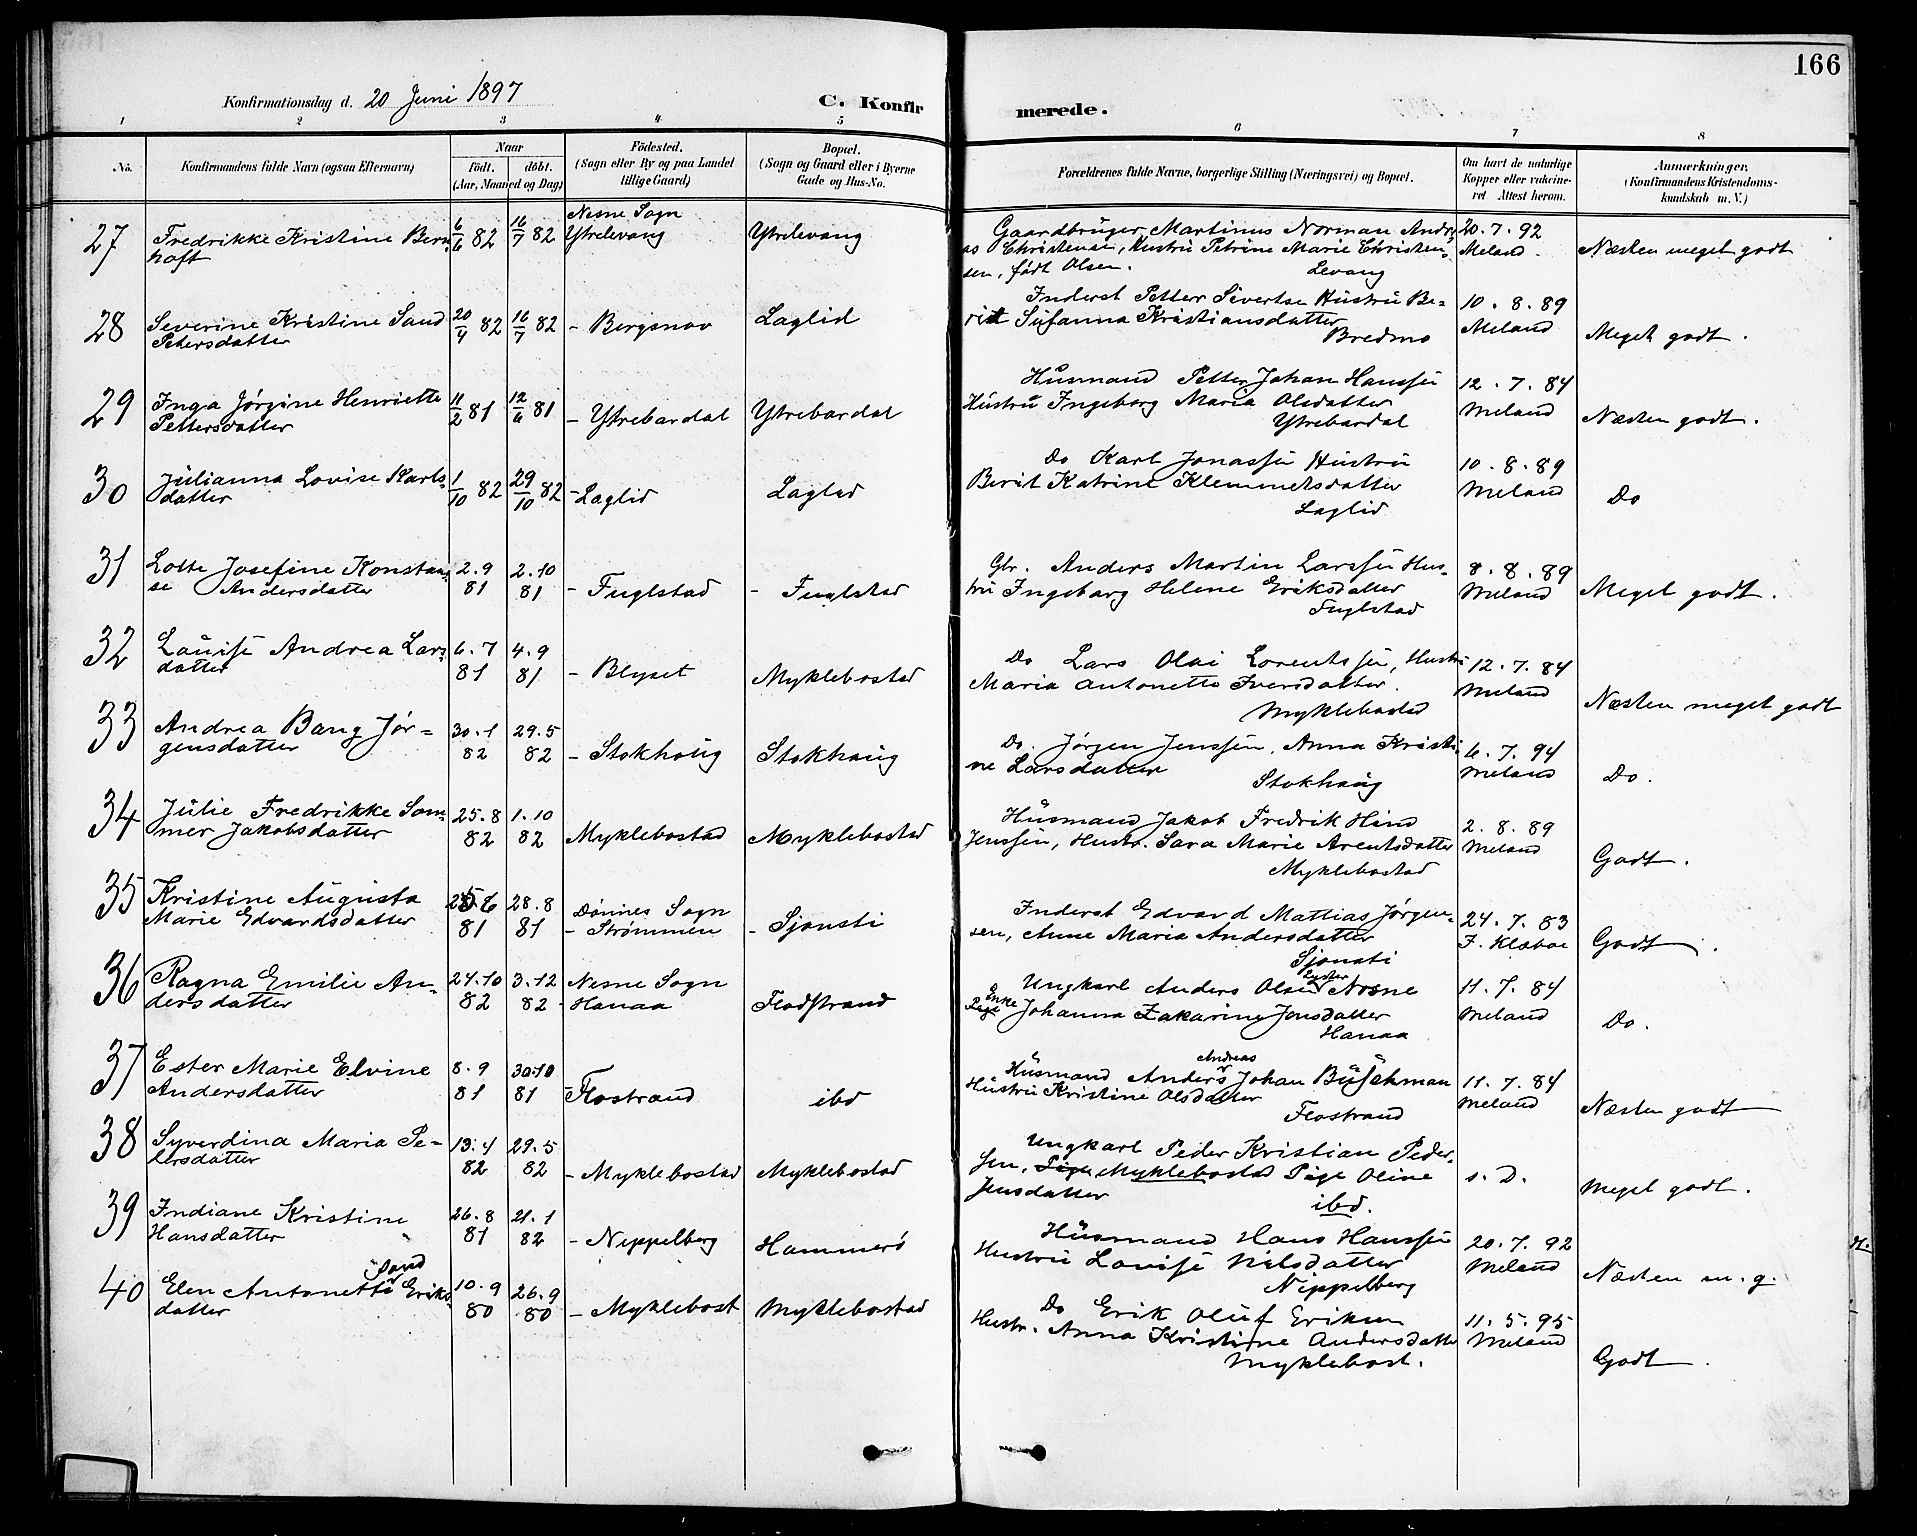 166
Konfirmationsdag d. 20 Juni 1897
C. Konfirmerede.
1 2 3 4 5 6 7 8
No. Konfirmandens fulde Navn (ogsaa Efternavn) Naar født. døbt. (Aar, Maaned og Dag) Fødested. (Sogn eller By og paa Landet tillige Gaard) Bopæl. (Sogn og Gaard eller i Byerne Gade og Hus-No. Forældrenes fulde Navne, borgerlige Stilling (Næringsvei) og Bopæl. Om havt de naturlige Kopper eller vakcineret Attest herom. Anmærkninger, (Konfirmandens Kristendomskundskab m. V.)
27 Fredrikke Kristine Bernhoft 6/6 82 16/7 82 Nesne Sogn Ytrelevang Ytrelevang Gaardbruger Martinus Norman Andreas Christensen, Hustru Petrine Marie Christensen, født Olsen. Levang 20.7.92 Meland. Næsten meget godt
28 Severine Kristine Sand Petersdatter 20/4 82 16/7 82 - Bergsnov Laglid Inderst Petter Sivertsen Hustru Berit Susanna Kristiansdatter Bredmo 10.8.89 Meland Meget godt.
29 Inga Jørgine Henriette Pettersdatter 11/2 81 12/6 81 - Ytrebardal Ytrebardal Husmand Petter Johan Hanssen Hustru Ingeborg Maria Olsdatter Ytrebardal 12.7.84 Meland Næsten godt.
30 Julianna Lovise Karlsdatter 1/10 82 29/10 82 - Laglid Laglid Do Karl Jonassen Hustru Berit Katrine Klemmetsdatter Laglid 10.8.89 Meland Do
31 Lotte Josefine Konstanse Andersdatter 2.9 81 2.10 81 - Fuglstad - Fuglstad Gbr. Anders Martin Larssen Hustru Ingeborg Helene Eriksdatter Fuglstad 8.8.89 Meland Meget godt.
32 Louise Andrea Larsdatter 6.7 81 4.9 81 - Blyset Myklebostad Do Lars Olai Lorentssen, Hustru Maria Antonette Iversdatter. Myklebostad 12.7.84 Meland Næsten meget godt
33 Andrea Bang Jørgensdatter 30.1 82 29.5 82 - Stokhaug Stokhaug Do. Jørgen Jenssen, Anna Kristine Larsdatter Stokhaug 6.7.94 Meland Do.
34 Julie Fredrikke Sommer Jakobsdatter 25.8 82 1.10 82 Myklebostad Myklebostad Husmand Jakob Fredrik Hind Jenssen, Hustr. Sara Marie Arentsdatter Myklebostad 2.8.89 Meland Godt.
35 Kristine Augusta Marie Edvardsdatter 6 81 28.8 81 Dønnes Sogn - Strømmen - Sjonsti Inderst Edvard Mattias Jørgensen, Anne Maria Andersdatter Sjonsti 24.7.83 F. Klæboe Godt.
36 Ragna Emilie Andersdatter 24.10 82 3.12 82 Nesne Sogn - Hanaa Flodstrand Ungkarl Anders Olsen Nesne Pige Enke Johanna Zakarine Jonsdatter Hanaa 11.7.84 Meland Do.
37 Ester Marie Elvine Andersdatter 8.9 81 30.10 81 - Flostrand ibd Husmand Anders Andreas Johan Büschman Hustru Kristine Olsdatter Flostrand 11.7.84 Meland Næsten godt
38 Syverdina Maria Petersdatter 13.4 82 29.5 82 - Myklebostad Myklebostad Ungkarl Peder Kristian Pedersen, Pige, Myklebostad Pige Oline Jensdatter ibd. s. D. Meget godt.
39 Indiane Kristine Hansdatter 26.8 81 21.1 82 - Nippelberg Hammerø Husmand Hans Hanssen Hustru Lovise Nilsdatter Nippelberg 20.7.92 Meland Næsten m. g.
40 Elen Antonette Sand Eriksdatter 10.9 80 26.9 80 - Myklebost Myklebostad Do Erik Oluf Eriksen Hustr. Anna Kristine Andersdatter Myklebost. 11.5.95 Meland Godt.